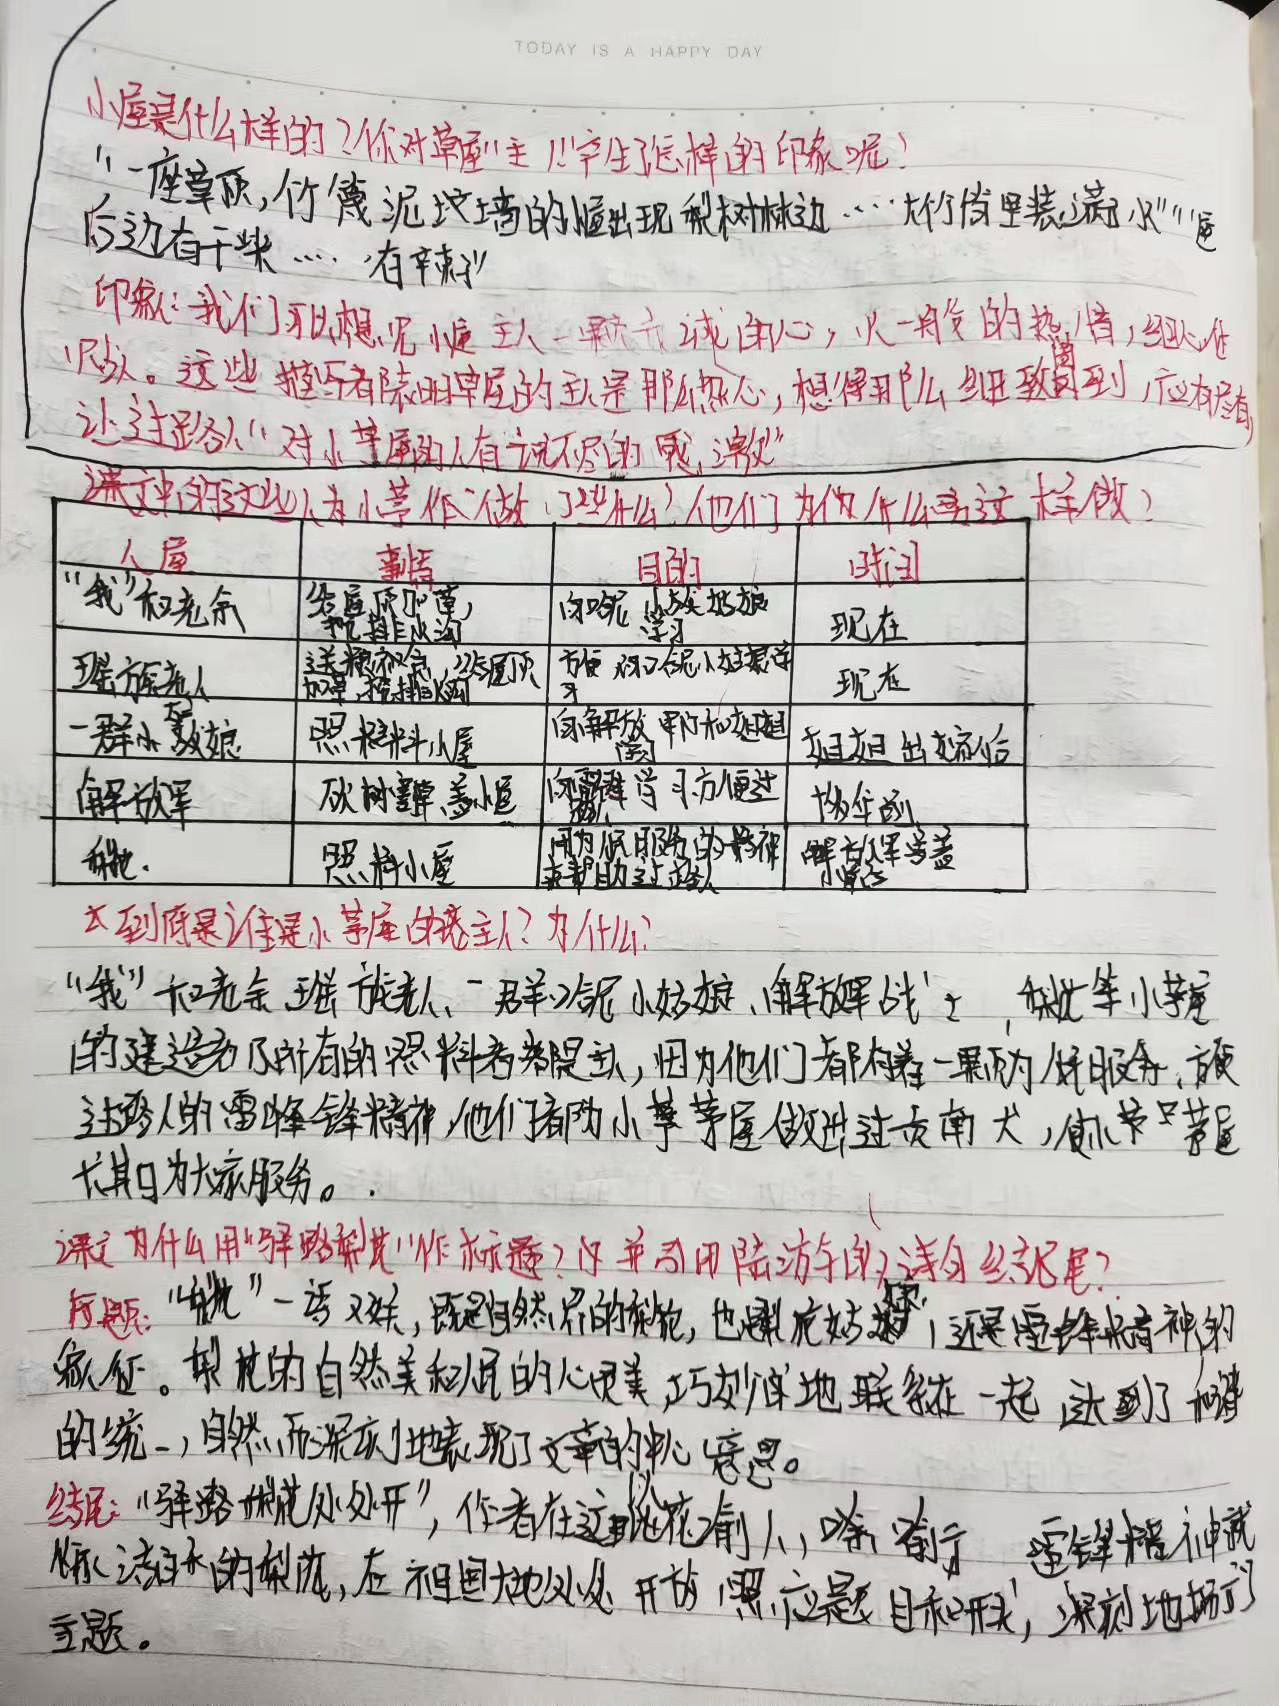 TODAY IS A HAPPY DAY
小屋是什么样的?你对草屋"主人"产生了怎样的印象呢?
"一座草顶,竹篾泥墙的小屋出现梨树林边……大竹筒里装满水""屋
后边有干柴……有辣子"
印象:我们可以想见小屋主人一颗赤诚的心,火一般的热情,细心体
这些描写者陈明草屋的主人是那么热心,想得那么细致周到,应有尽有,
让过路人"对小茅屋的主人有说不尽的感激"
课文中的这些人为小茅屋做了些什么?他们为什么要这样做?
人屋 事情 目的 时间
"我"和老余 给屋顶加草,挖排水沟 向哈尼小姑娘学习 现在
瑶族老人 送粮食,给屋顶加草,挖排水沟 方便 哈尼小姑娘学习 现在
一群小姑娘 照料小屋 向解放军和姐姐学习 姐姐出嫁后
解放军 砍树割草盖小屋 向雷锋学习方便过路人 十多年前
梨花. 照料小屋 用为人民服务的精神来帮助过路人 解放军盖小屋后
到底是谁是小茅屋的主人?为什么?
"我"和老余、瑶族老人、一群哈尼小姑娘、解放军战士,梨花等小茅屋
的建造者及所有的照料者都是主人,因为他们都有着一颗为人民服务、方便
过路人的雷锋精神,他们都为小茅屋做过贡献,使小茅屋
长期为大家服务。
课文为什么用"驿路梨花"作标题?并引用陆游的诗句结尾?
标题:"梨花"一语双关,既是自然界的梨花,也是梨花姑娘,还是雷锋精神的
象征。梨花的自然美和人民的心灵美巧妙地联系在一起 达到了和谐
的统一,自然而深刻地表现了文章的中心意思。
结尾:"驿路梨花处处开",作者在这里以花喻人, 雷锋精神就
像洁白的梨花,在祖国大地处处开放 照应题目和开头,深刻地揭示了
主题。